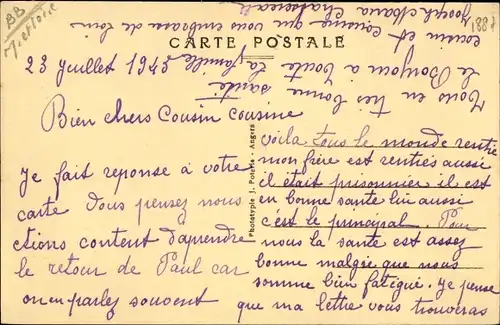 BB
1887
CARTE POSTALE
23 juillet 1945
Bien chers Cousin cousine
Je fait reponse à votre
carte Vous pensez nous
étions content d'aprendre
le retour de Paul car
on en parlez souvent
Phototypie J. Angers
voila tous le monde rentré
mon frère est rentiés aussi
il était prisonnier il est
en bonne santé lui aussi
c'est le principal. Pour
nous la santé est assez
bonne malgré que nous
somme bien fatigué. Je pense
que ma lettre vous trouveras
Tous en très bonne santé
le Bonjour a toute la famille
cousin et cousine que vous embrasse de loin
Joseph Maria